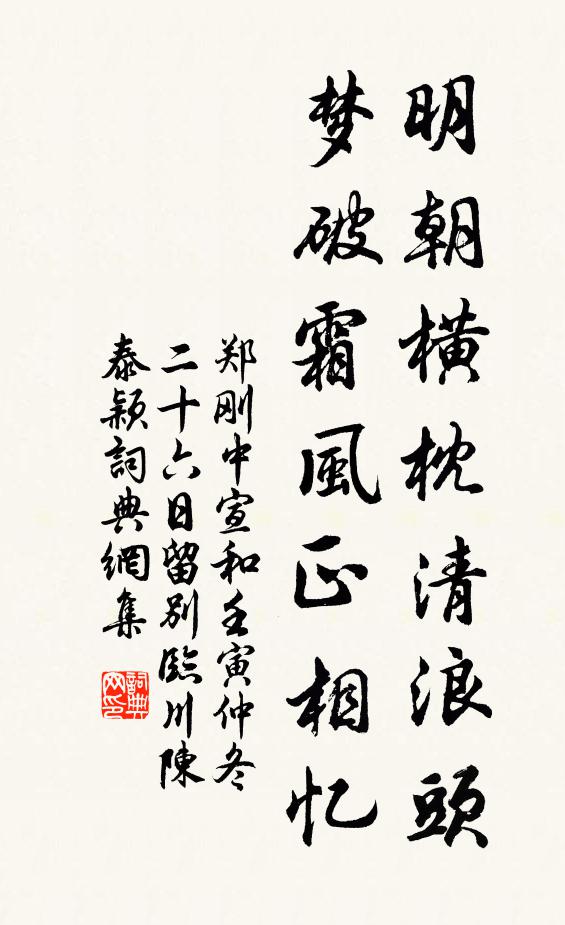 明朝橫枕清浪頭
梦破霜風正相忆
郑刚中宣和壬寅仲冬
二十六日留别臨川陳
泰颖詞典網集
詞典网印